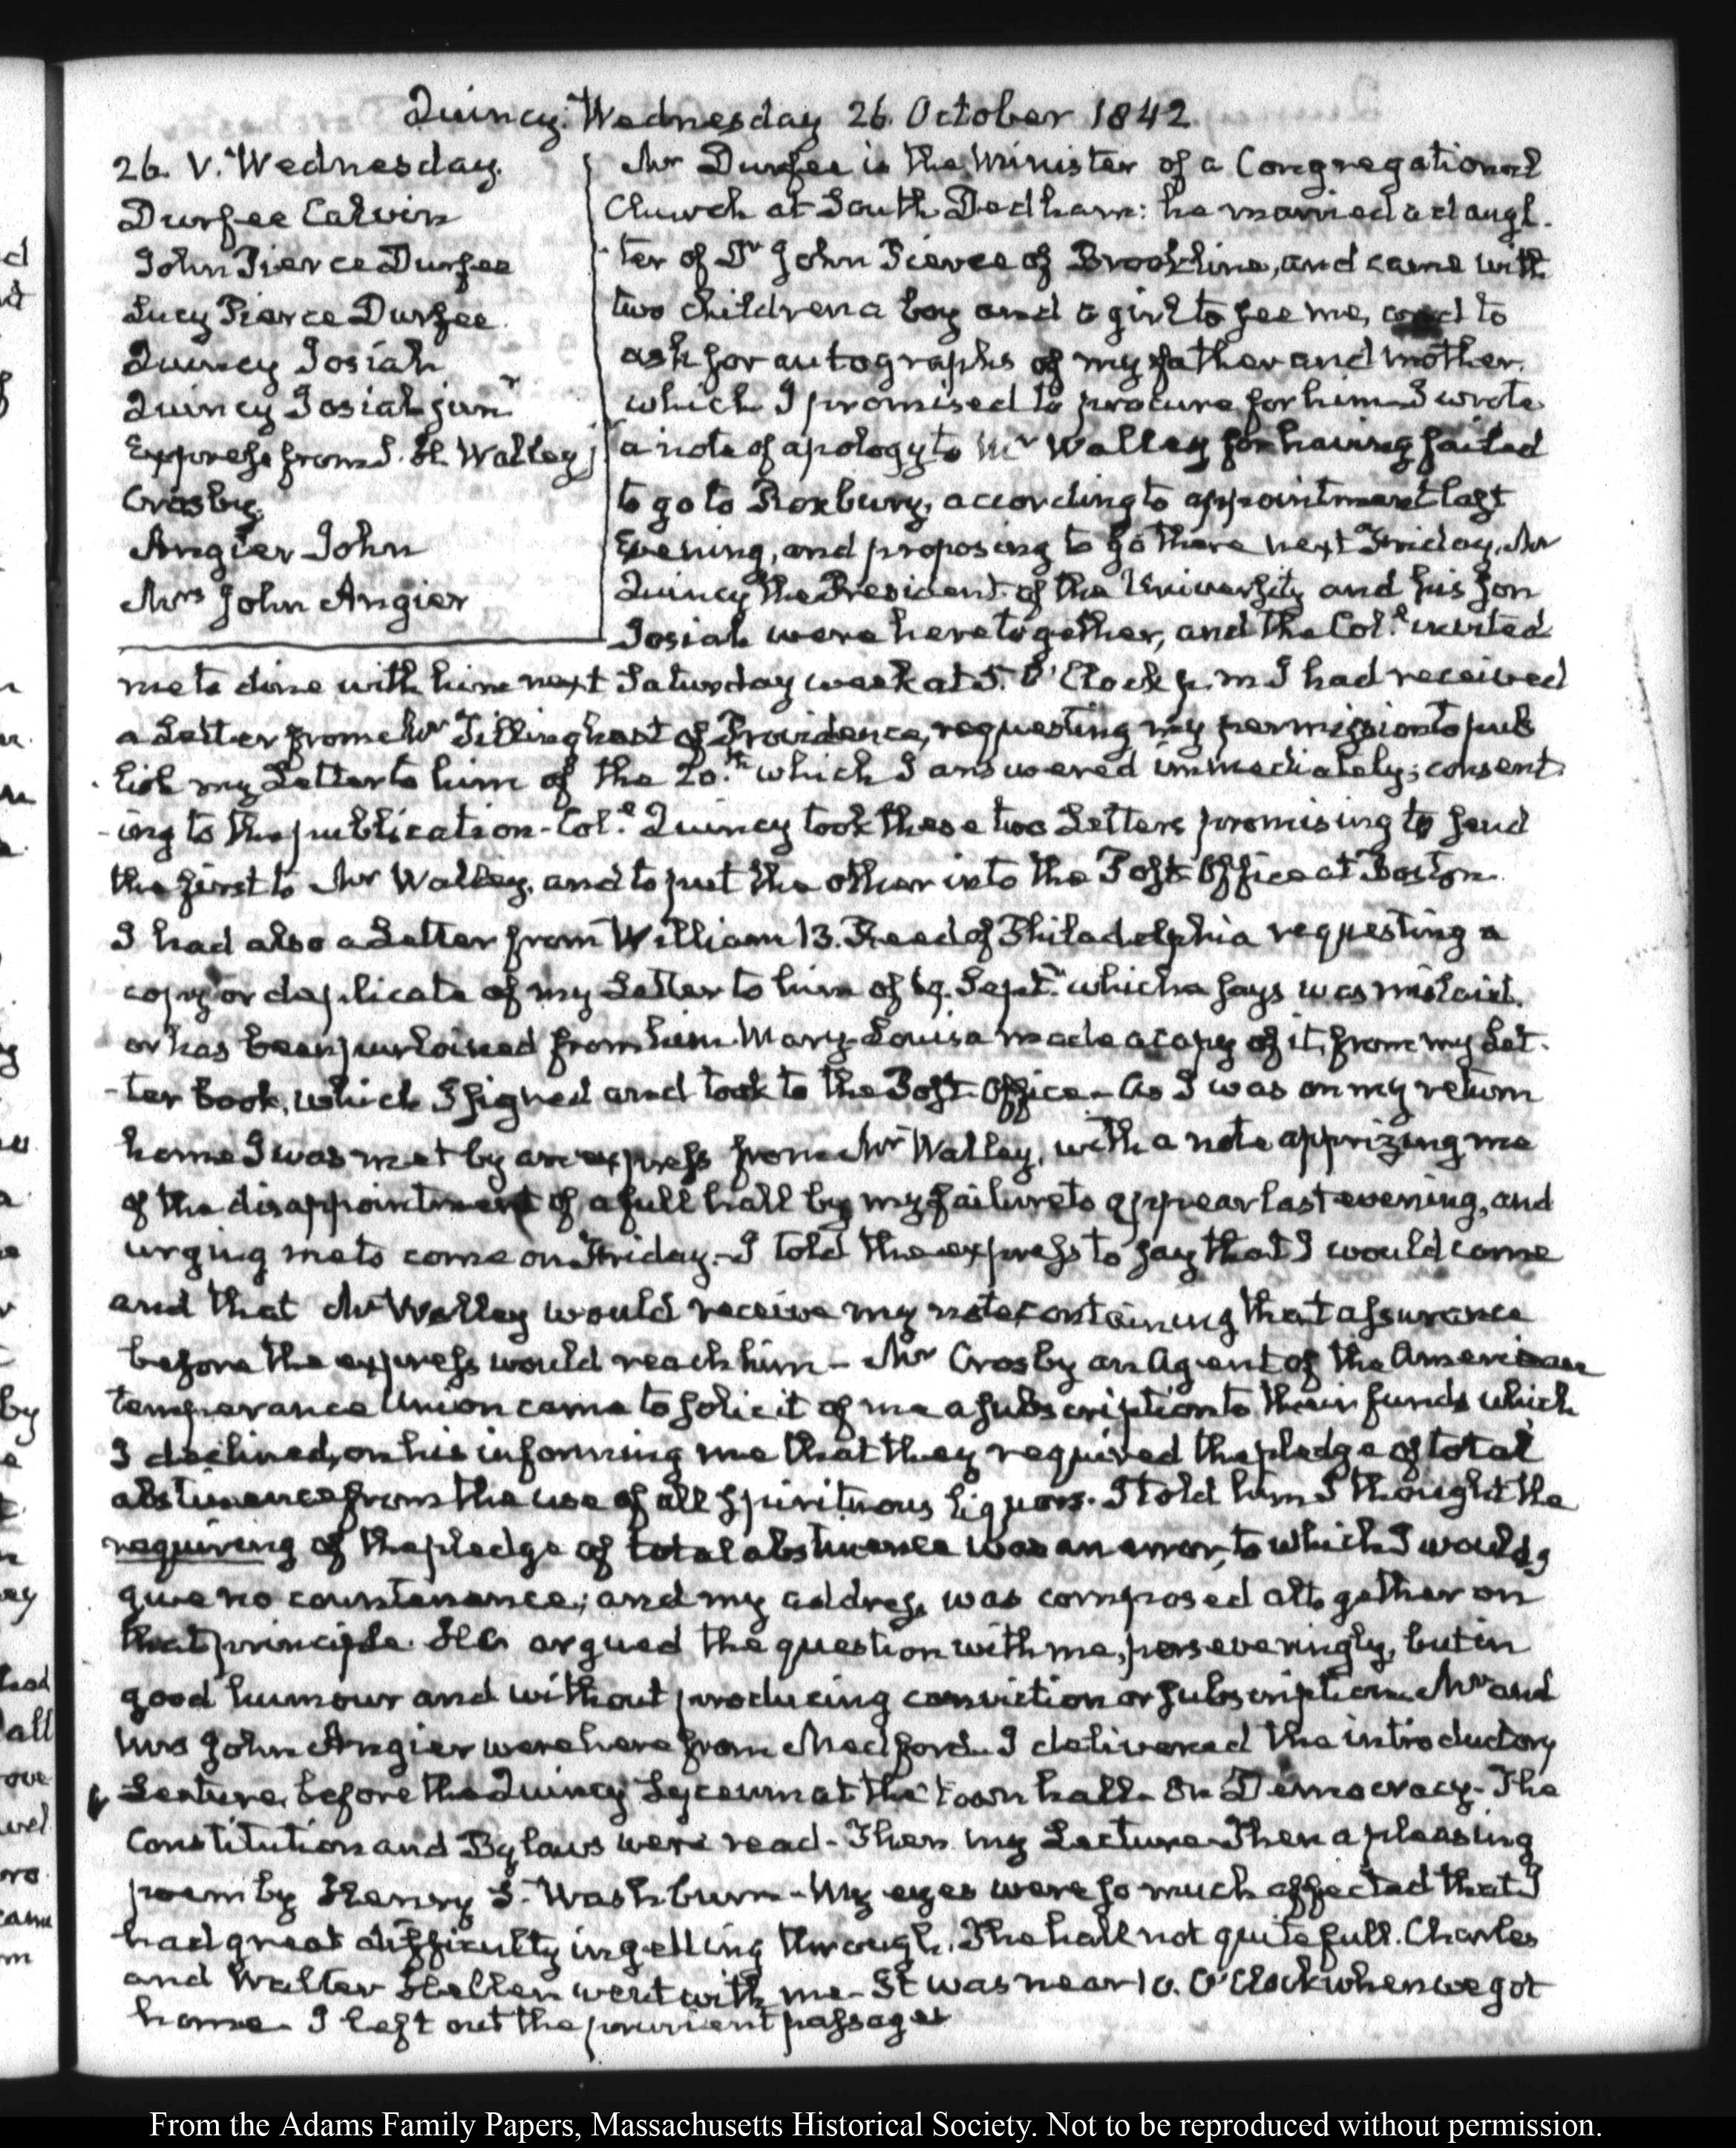 Quincy. Wednesday 26. October 1842.
26. V. Wednesday.
Durfee Calvin
John Pierce Durfee
Lucy Pierce Durfee.
Quincy Josiah
Quincy Josiah junr
Express from S. H. Walley jr
Crosby.
Angier John
Mrs John Angier
Mr Durfee is the Minister of a Congregational
Church at South Dedham: he married a daugh-
-ter of Dr John Pierce of Brookline, and came with
two children a boy and a girl to see me, and to
ask for autographs of my father and mother.
which I promised to procure for him. I wrote
a note of apology to Mr Walley for having failed
to go to Roxbury, according to appointment last
Evening, and proposing to go there next Friday. Mr
Quincy the President of the University and his Son
Josiah were here together, and the Col.l invited
me to dine with him next Saturday week at 5. O'Clock p.m. I had received
a Letter from Mr Tillinghast of Providence, requesting my permission to pub
lish my Letter to him of the 20.th which I answered immediately; consent-
-ing to the publication - Col.l Quincy took these two Letters promising to send
the first to Mr Walley, and to put the other into the Post-Office at Boston.
I had also a Letter from William B. Reed of Philadelphia requesting a
copy or duplicate of my Letter to him of 19. Sept.r which he says was mislaid.
or has been purloined from him. Mary-Louisa made a copy of it, from my Let-
-ter book, which I signed and took to the Post-Office - As I was on my return
home I was met by an express from Mr Walley, with a note apprizing me
of the disappointment of a full hall by my failure to appear last evening, and
urging me to come on Friday. - I told the express to say that I would come
and that Mr Walley would receive my note containing that assurance
before the express would reach him - Mr Crosby an Agent of the American
temperance Union came to solicit of me a subscription to their funds which
I declined, on his informing me that they required the pledge of total
abstinence from the use of all spirituous liquors. I told him I thought the
requiring of the pledge of total abstinence was an error, to which I would
give no countenance; and my address was composed altogether on
that principle. He argued the question with me, perseveringly, but in
good humour and without producing conviction or subscription. Mr and
Mrs John Angier were here from Medford. I delivered the introductory
Lecture, before the Quincy Lyceum at the town hall - On Democracy - The
Constitution and By laws were read - Then my Lecture - Then a pleasing
poem by Henry S. Washburn - My eyes were so much affected that I
had great difficulty in getting through. The hall not quite full. Charles
and Walter Hellen went with me - It was near 10. O'Clock when we got
home. I left out the prurient passages
From the Adams Family Papers, Massachusetts Historical Society. Not to be reproduced without permission.